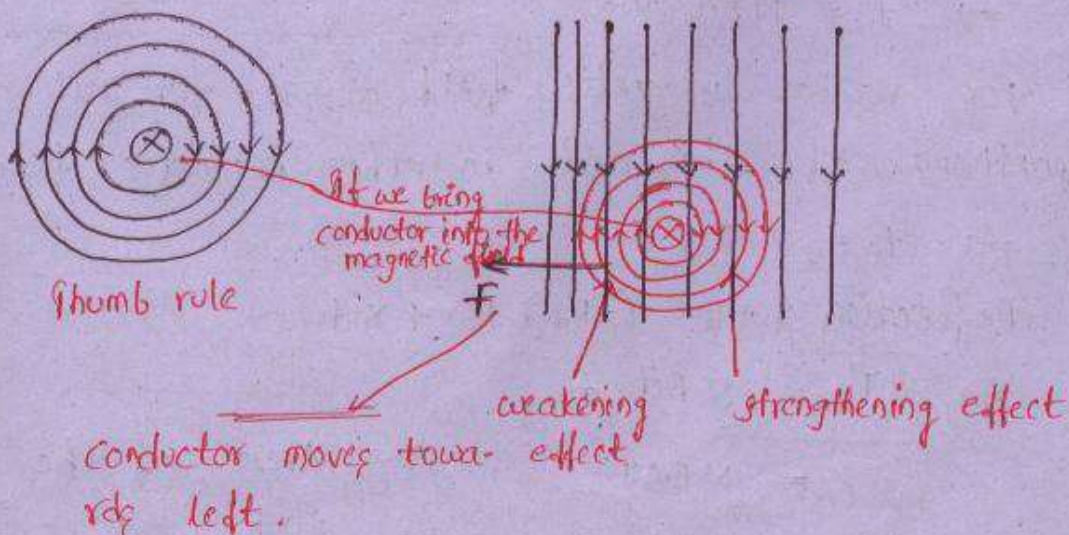 If we bring
conductor into the
magnetic field
Thumb rule
F
weakening
effect
strengthening effect
conductor moves towa-
rds left.